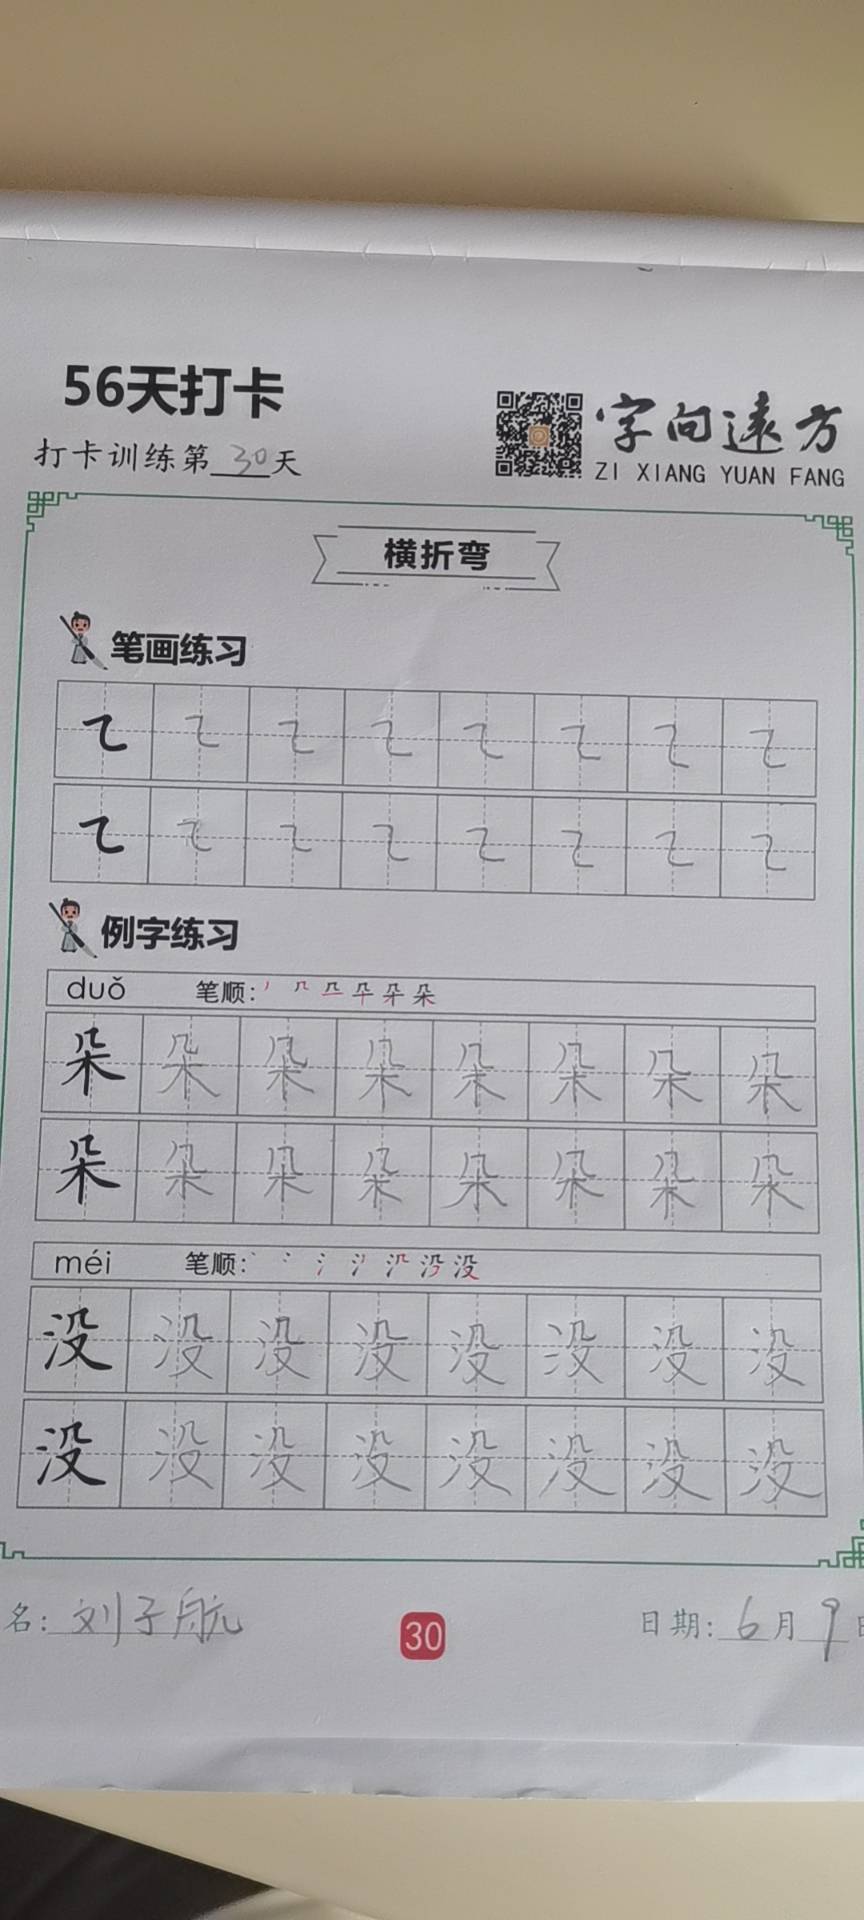 56天打卡
打卡训练第30天
字向遠方
ZI XIANG YUAN FANG
横折弯
笔画练习
㇍ ㇍ ㇍ ㇍ ㇍ ㇍ ㇍ ㇍
㇍ ㇍ ㇍ ㇍ ㇍ ㇍ ㇍ ㇍
例字练习
duǒ 笔顺:
朵 朵 朵 朵 朵 朵 朵 朵
朵 朵 朵 朵 朵 朵 朵 朵
méi 笔顺:
没 没 没 没 没 没 没 没
没 没 没 没 没 没 没 没
名: 刘子航
30
日期: 6月9日